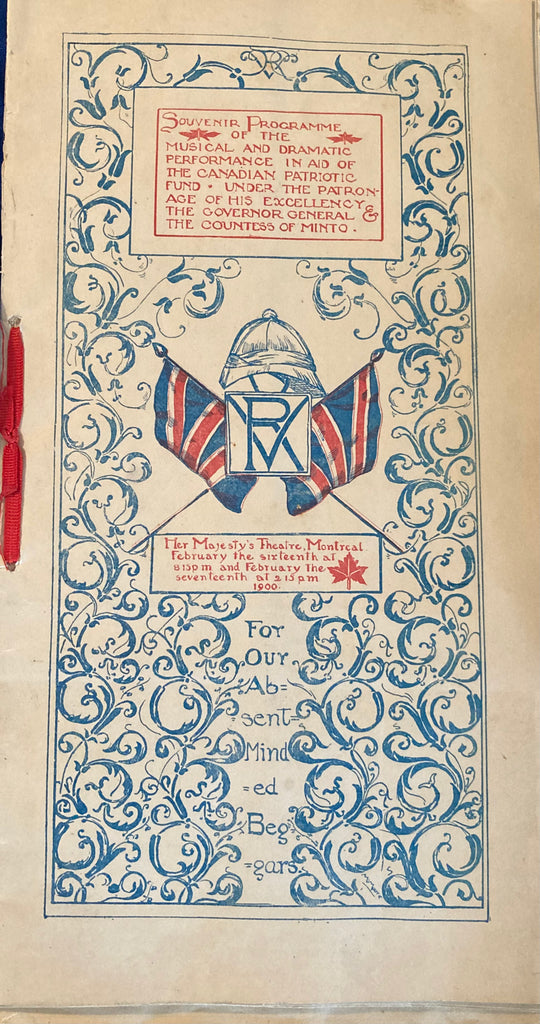 VR
Souvenir Programme
of the
Musical and Dramatic
Performance in aid of
the Canadian Patriotic
Fund · Under the Patron-
age of His Excellency
the Governor General &
the Countess of Minto.
VR
Her Majesty's Theatre, Montreal
February the sixteenth at
8 15 p m and February the
seventeenth at 2 15 p m
1900.
For
Our
Ab=
sent=
Mind
=ed
Beg
=gars.